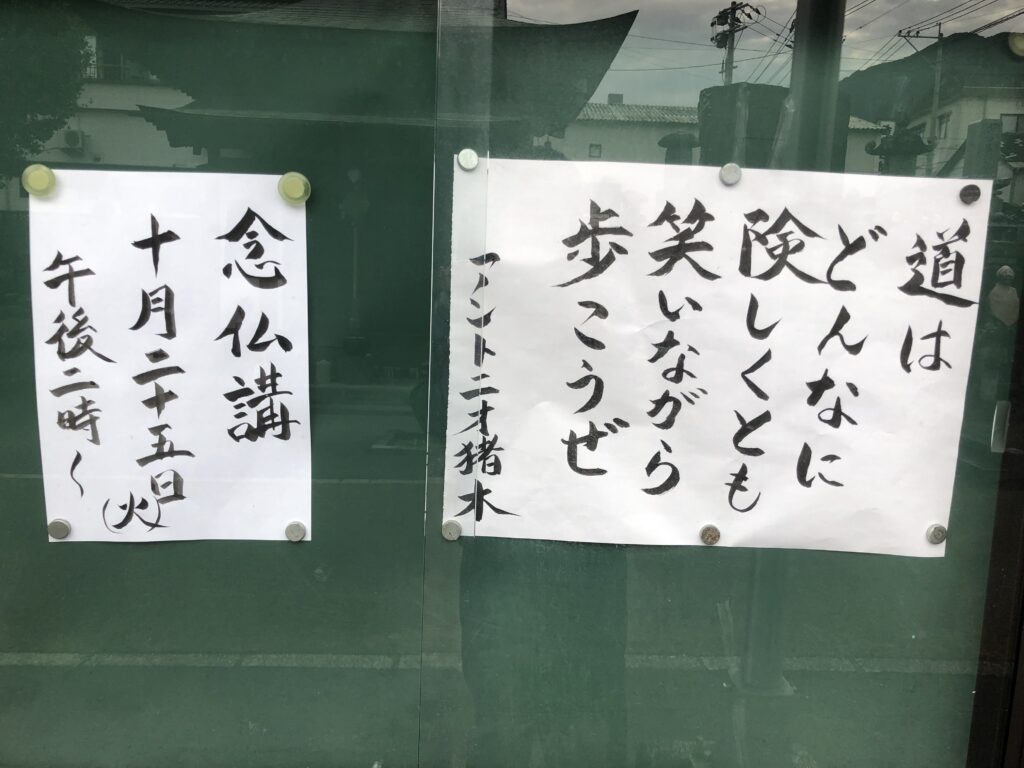 道は
どんなに
険しくとも
笑いながら
歩こうぜ
アントニオ猪木
念仏講
十月二十五日(火)
午後二時〜